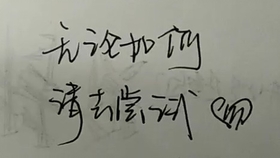 无论如何
请去尝试